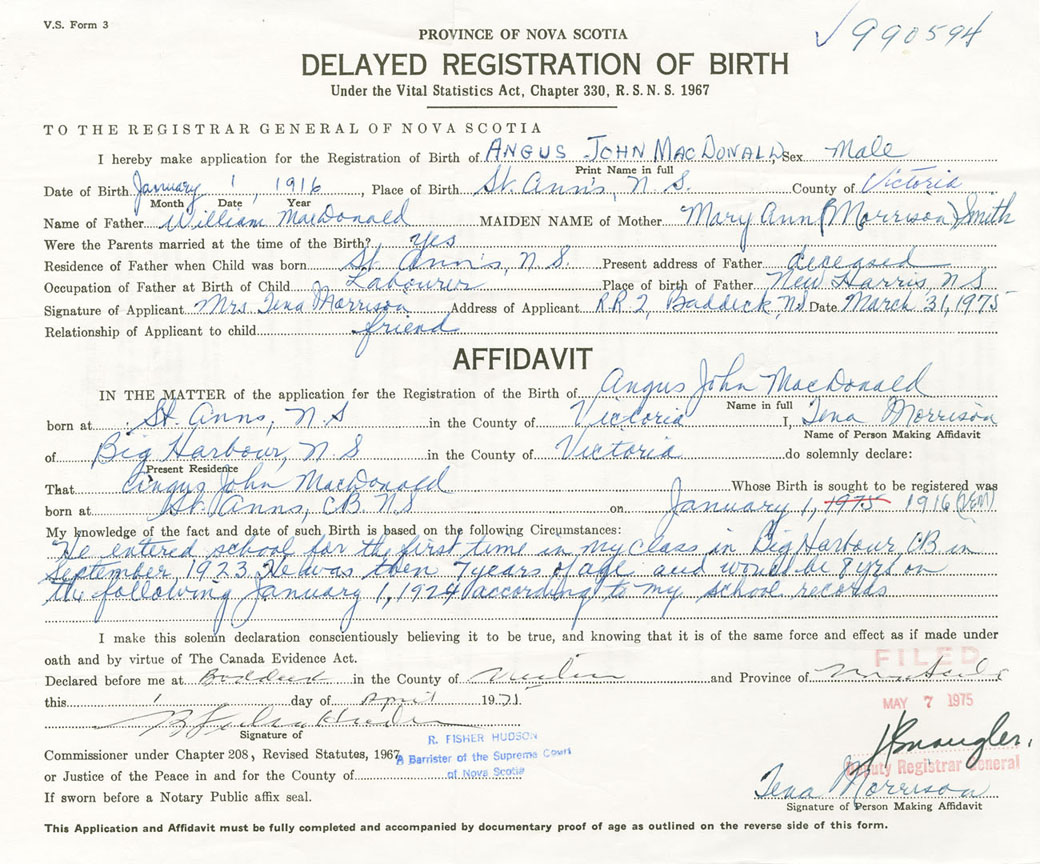 V.S. Form 3
✓990594
PROVINCE OF NOVA SCOTIA
DELAYED REGISTRATION OF BIRTH
Under the Vital Statistics Act, Chapter 330, R. S. N. S. 1967
TO THE REGISTRAR GENERAL OF NOVA SCOTIA
I hereby make application for the Registration of Birth of ANGUS JOHN MACDONALD Sex Male
Print Name in full
Date of Birth January 1, 1916, Place of Birth St. Ann's, N. S. County of Victoria
Month Date Year
Name of Father William MacDonald MAIDEN NAME of Mother Mary Ann (Morrison) Smith
Were the Parents married at the time of the Birth? Yes
Residence of Father when Child was born St. Ann's, N.S. Present address of Father deceased
Occupation of Father at Birth of Child Labourer Place of birth of Father New Harris, N S
Signature of Applicant Mrs. Tena Morrison Address of Applicant R.R. 2, Baddeck, N.S Date March 31, 1975
Relationship of Applicant to child friend
AFFIDAVIT
IN THE MATTER of the application for the Registration of Birth of Angus John MacDonald
Name in full
born at St. Anns, N. S in the County of Victoria I, Tena Morrison
Name of Person Making Affidavit
of Big Harbour, N. S in the County of Victoria do solemnly declare:
Present Residence
That Angus John MacDonald Whose Birth is sought to be registered was
born at St. Anns, C.B. N.S on January 1, 1975 1916
My knowledge of the fact and date of such Birth is based on the following Circumstances:
He entered school for the first time in my class in Big Harbour, CB in
September, 1923. He was then 7 years of age and would be 8 yrs on
the following January 1, 1924 according to my school records
I make this solemn declaration conscientiously believing it to be true, and knowing that it is of the same force and effect as if made under
oath and by virtue of The Canada Evidence Act.
Declared before me at Baddeck in the County of Victoria and Province of Nova Scotia
FILED
this 1 day of April 19
MAY 7 1975
Signature of
R. FISHER HUDSON
Commissioner under Chapter 208, Revised Statutes, 1967,
A Barrister of the Supreme Court
or Justice of the Peace in and for the County of
of Nova Scotia
Deputy Registrar General
Tena Morrison
If sworn before a Notary Public affix seal.
Signature of Person Making Affidavit
This Application and Affidavit must be fully completed and accompanied by documentary proof of age as outlined on the reverse side of this form.